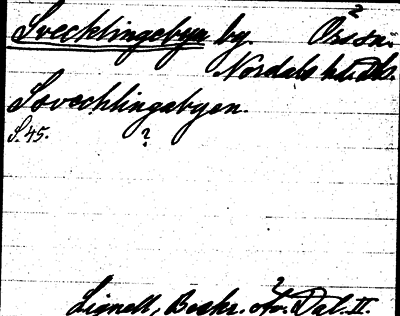 Svecklingebyn by. Örs sn.
Nordals hd. Dls.
Sovecklingabyen.
S. 45. ?
Lignell, Beskr. öfv. Dal. II.